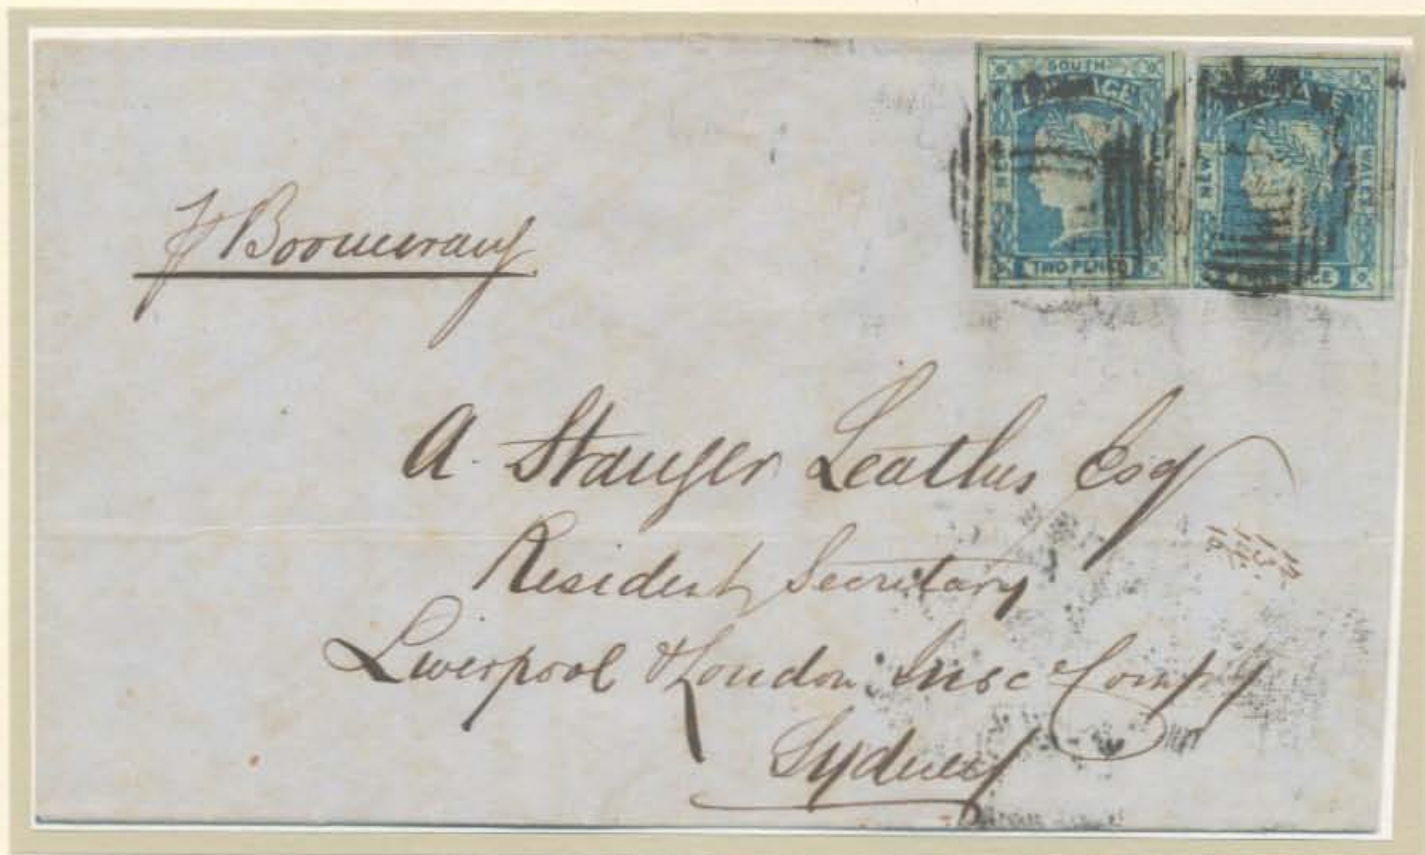 SOUTH
POSTAGE
NEW
TWO PENCE
NEW
WALES
p Boomerang
A. Stanger Leathes Esq
Resident Secretary
Liverpool & London Insce Compy
Sydney